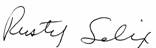 Rusty Selix